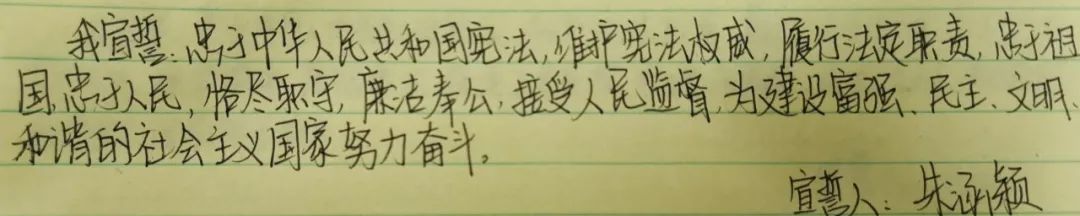 我宣誓:忠于中华人民共和国宪法,维护宪法权威,履行法定职责,忠于祖
国,忠于人民,恪尽职守,廉洁奉公,接受人民监督,为建设富强、民主、文明、
和谐的社会主义国家努力奋斗。
宣誓人:朱涵颖